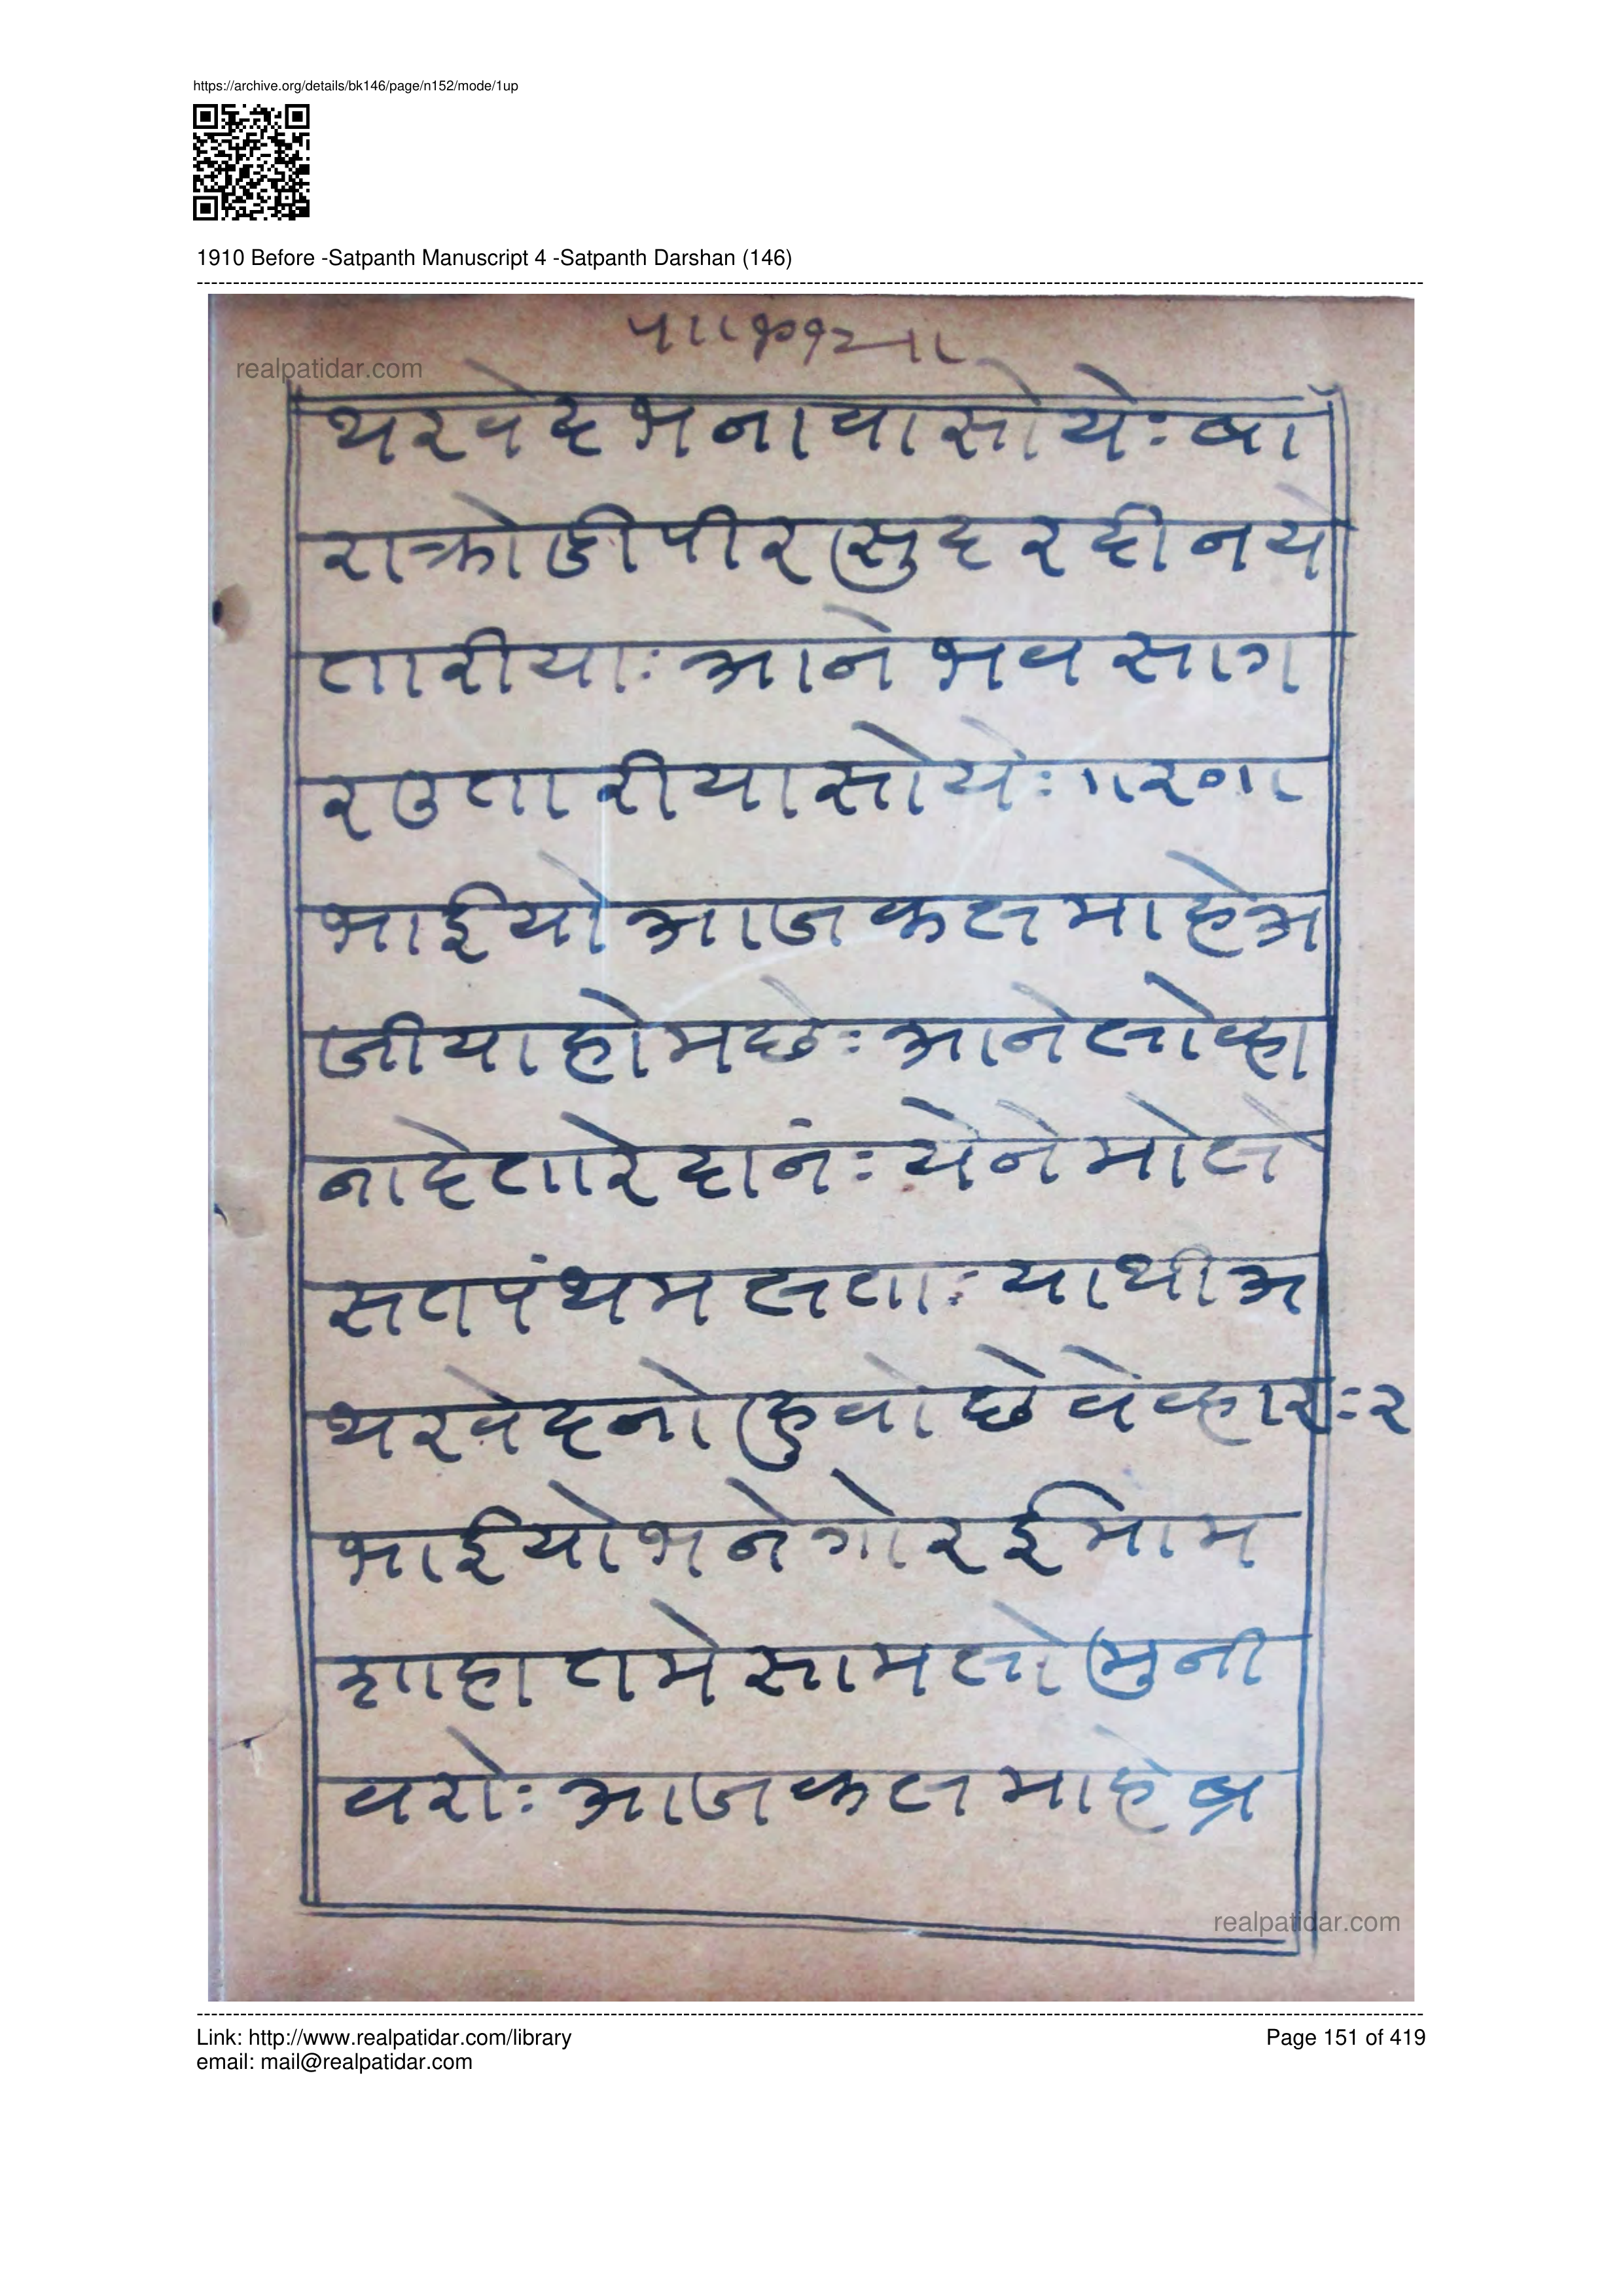 https://archive.org/details/bk146/page/n152/mode/1up
1910 Before -Satpanth Manuscript 4 -Satpanth Darshan (146)
realpatidar.com
थरवेद भनावा सोये: बा
रा क्रोडी पीर सुदरदीनये
तारीया: आने भवसाग
र उतारीया सोये: ॥१॥
भाईयो आज कल माहे अ
जीया होम छे: आने लोव्हा
ना देता रे दानं: येने मोले
सतपंथ मलता: याथी अ
थरवेदनो हुवो छे वेव्हार: २
भाईयो भने गोर ईमाम
शाहा तमे सामलो मुनी
वरो: आज कल माहे ब्र
realpatidar.com
Link: http://www.realpatidar.com/library
Page 151 of 419
email: mail@realpatidar.com